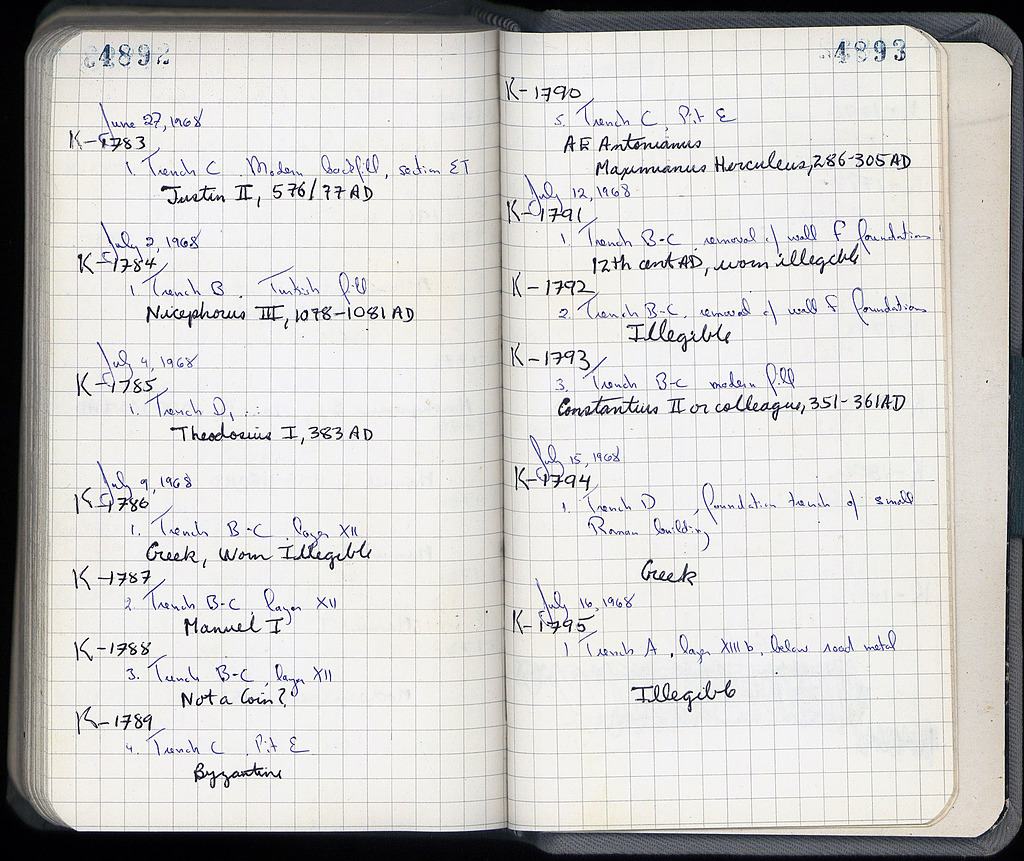 4892
June 27, 1968
K-1783
1. Trench C. Modern backfill, section ET
Justin II, 576/77 AD
July 2, 1968
K-1784
1. Trench B. Turkish fill
Nicephorus III, 1078-1081 AD
July 4, 1968
K-1785
1. Trench D, ...
Theodosius I, 383 AD
July 9, 1968
K-1786
1. Trench B-C, layer XII
Greek, Worn Illegible
K-1787
2. Trench B-C, layer XII
Manuel I
K-1788
3. Trench B-C, layer XII
Not a Coin?
K-1789
4. Trench C, Pit E
Byzantine
4893
K-1790
5. Trench C, Pit E
AE Antonianus
Maximianus Herculeus, 286-305 AD
July 12, 1968
K-1791
1. Trench B-C, removal of wall F foundations
12th cent AD, worn illegible
K-1792
2. Trench B-C, removal of wall F foundations
Illegible
K-1793
3. Trench B-C modern fill
Constantius II or colleague, 351-361 AD
July 15, 1968
K-1794
1. Trench D, foundation trench of small
Roman building
Greek
July 16, 1968
K-1795
1 Trench A, layer XIII b, below road metal
Illegible